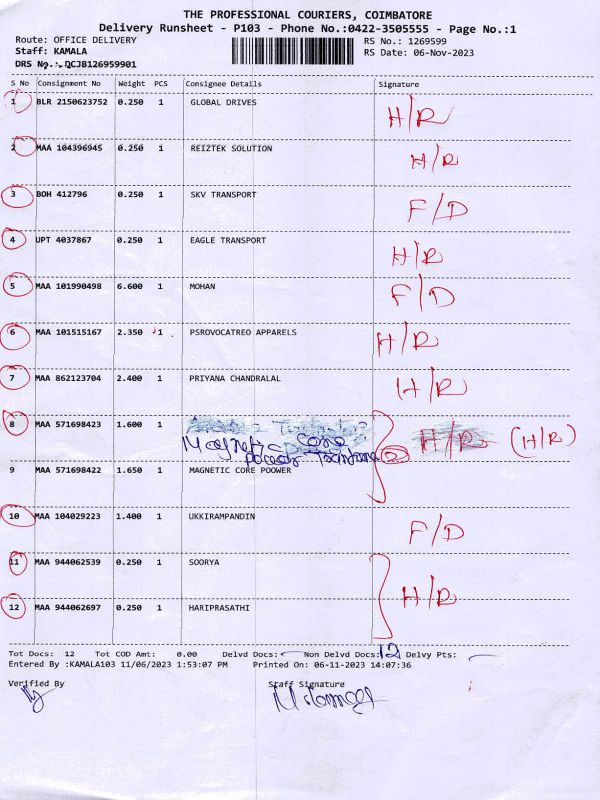 THE PROFESSIONAL COURIERS, COIMBATORE
Delivery Runsheet - P103 - Phone No.:0422-3505555 - Page No.:1
Route: OFFICE DELIVERY RS No.: 1269599
Staff: KAMALA RS Date: 06-Nov-2023
DRS No.: DCJB126959901
S No Consignment No Weight PCS Consignee Details Signature
1 BLR 2150623752 0.250 1 GLOBAL DRIVES H/R
2 MAA 104396945 0.250 1 REIZTEK SOLUTION H/R
3 BOH 412796 0.250 1 SKV TRANSPORT F/D
4 UPT 4037867 0.250 1 EAGLE TRANSPORT H/R
5 MAA 101990498 6.600 1 MOHAN F/D
6 MAA 101515167 2.350 1 PSROVOCATREO APPARELS H/R
7 MAA 862123704 2.400 1 PRIYANA CHANDRALAL H/R
8 MAA 571698423 1.600 1 H/R (H/R)
Magnetic core
9 MAA 571698422 1.650 1 MAGNETIC CORE POOWER
10 MAA 104029223 1.400 1 UKKIRAMPANDIN F/D
11 MAA 944062539 0.250 1 SOORYA H/R
12 MAA 944062697 0.250 1 HARIPRASATHI
Tot Docs: 12 Tot COD Amt: 0.00 Delvd Docs: Non Delvd Docs: 12 Delvy Pts:
Entered By :KAMALA103 11/06/2023 1:53:07 PM Printed On: 06-11-2023 14:07:36
Verified By Staff Signature